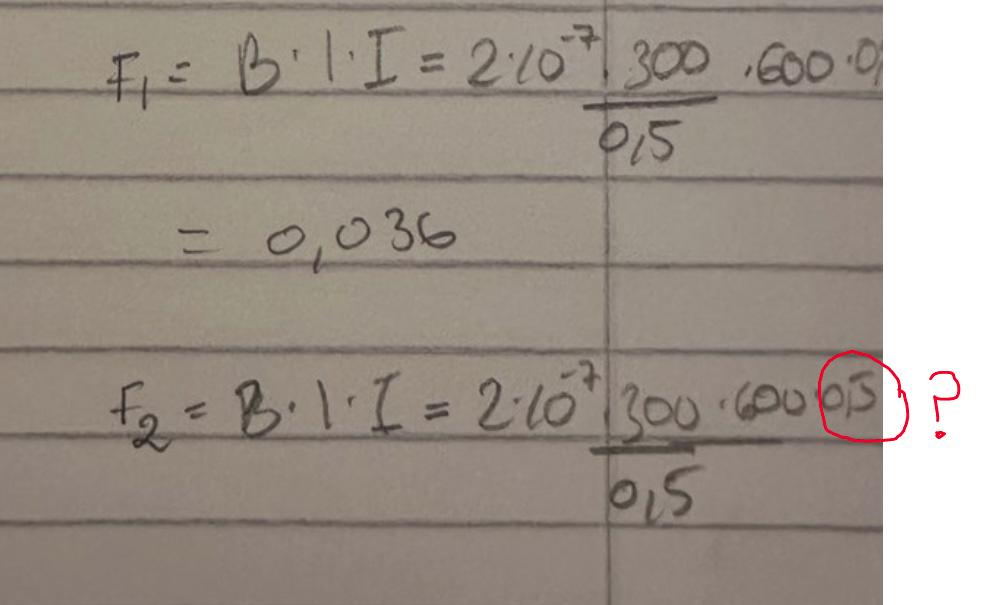 F₁ = B · l · I = 2·10⁻⁷ · 300 · 600 · 0,
0,5
= 0,036
F₂ = B · l · I = 2·10⁻⁷ · 300 · 600 0,5 ?
0,5